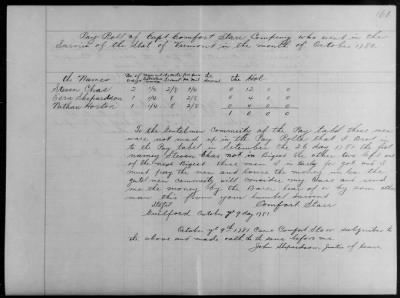 101
Pay Roll of Capt Comfort Starr Company who went in the
Servise of the Stat of Vermont in the month of October 1780.
the Names No of days the Hol
Steven Chas 2 1/4 2/8 1/4 0 12 0 0
Ezra Shepardson 1 1/4 8 2/8 0 4 0 0
Nathan Horton 1 1/4 8 2/8 0 4 0 0
1 0 0 0
To the Gentelmen Commity of the Pay tabel these men
ware not made up in the Pay Rolls that I Sent in
to the Pay tabel in Setember the 26 day 1781 the first
namely Steven Chas not in Bigest the other two left out
of the most Bigest these men I must
must pray the men and borrow the mony in hoc the
gentelmen commity will consider my and send
me the mony by the Barer hear of or by som other
man this from your humbel Sarvant
Comfort Starr
Guildford October ye 9 day 1781
October ye 9th 1781 Came Comfort Starr subscriber to
the above and made oath to the same before me.
John Shepardson, Justice of Peace